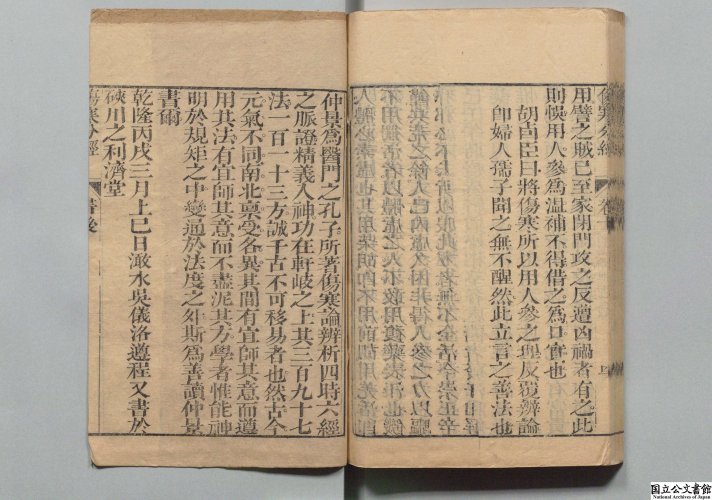 傷寒分經
用譬之賊已至家閉門攻之反遭凶禍者有之此
則悞用人參爲溫補不得借之爲口實也
胡卣臣曰將傷寒所以用人參之理反覆辨論
即婦人孺子聞之無不醒然此立言之善法也
人體必素虛也其用柴胡即不用前胡羌活即
仲景爲醫門之孔子所著傷寒論辨析四時六經
之脈證精義入神功在軒岐之上其三百九十七
法一百一十三方誠千古不可移易者也然古今
元氣不同南北稟受各異其間有宜師其意而遵
用其法有宜師其意而不盡泥其方學者惟能神
明於規矩之中變通於法度之外斯爲善讀仲景
書爾
乾隆丙戌三月上巳日澉水吳儀洛遵程又書於
硤川之利濟堂
傷寒分經 書後
国立公文書館
National Archives of Japan